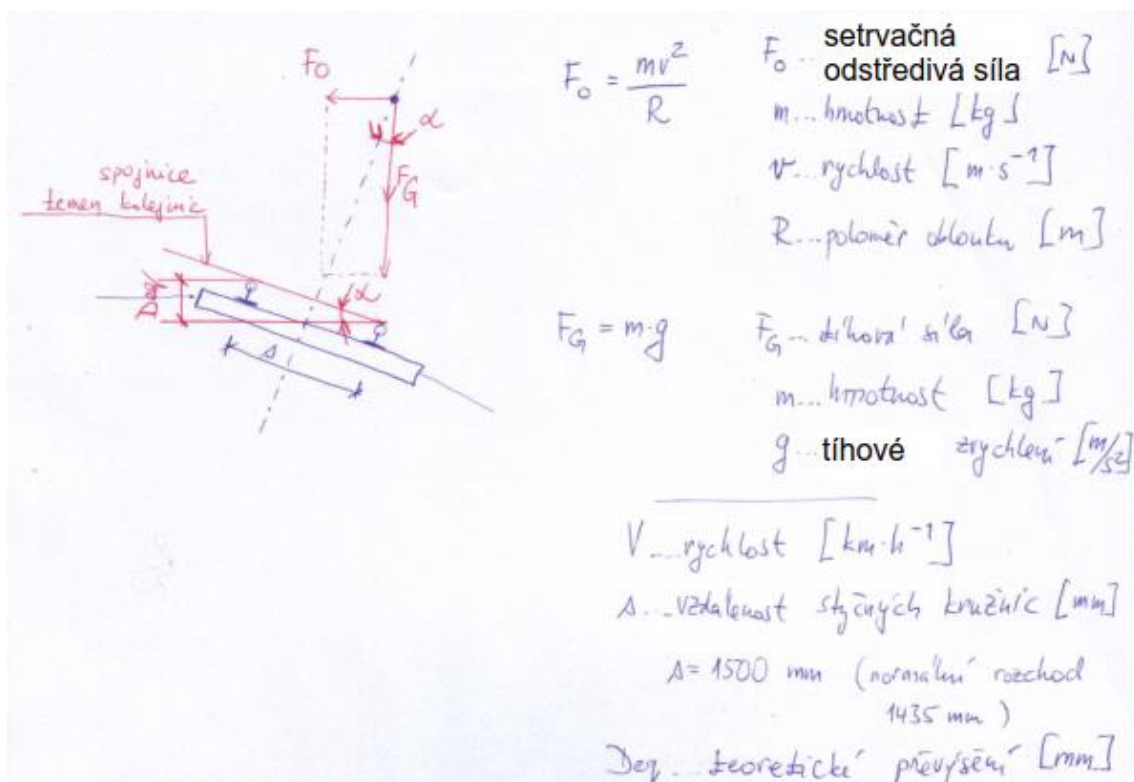 F₀
α
F_G
spojnice
temen kolejnic
D
α
s
F₀ = mv²/R
F₀... setrvačná
odstředivá síla [N]
m...hmotnost [kg]
v...rychlost [m·s⁻¹]
R...poloměr oblouku [m]
F_G = m·g
F_G...tíhová síla [N]
m...hmotnost [kg]
g...tíhové zrychlení [m/s²]
V....rychlost [km·h⁻¹]
s...vzdálenost styčných kružnic [mm]
s=1500 mm (normální rozchod
1435 mm)
Deq...teoretické převýšení [mm]